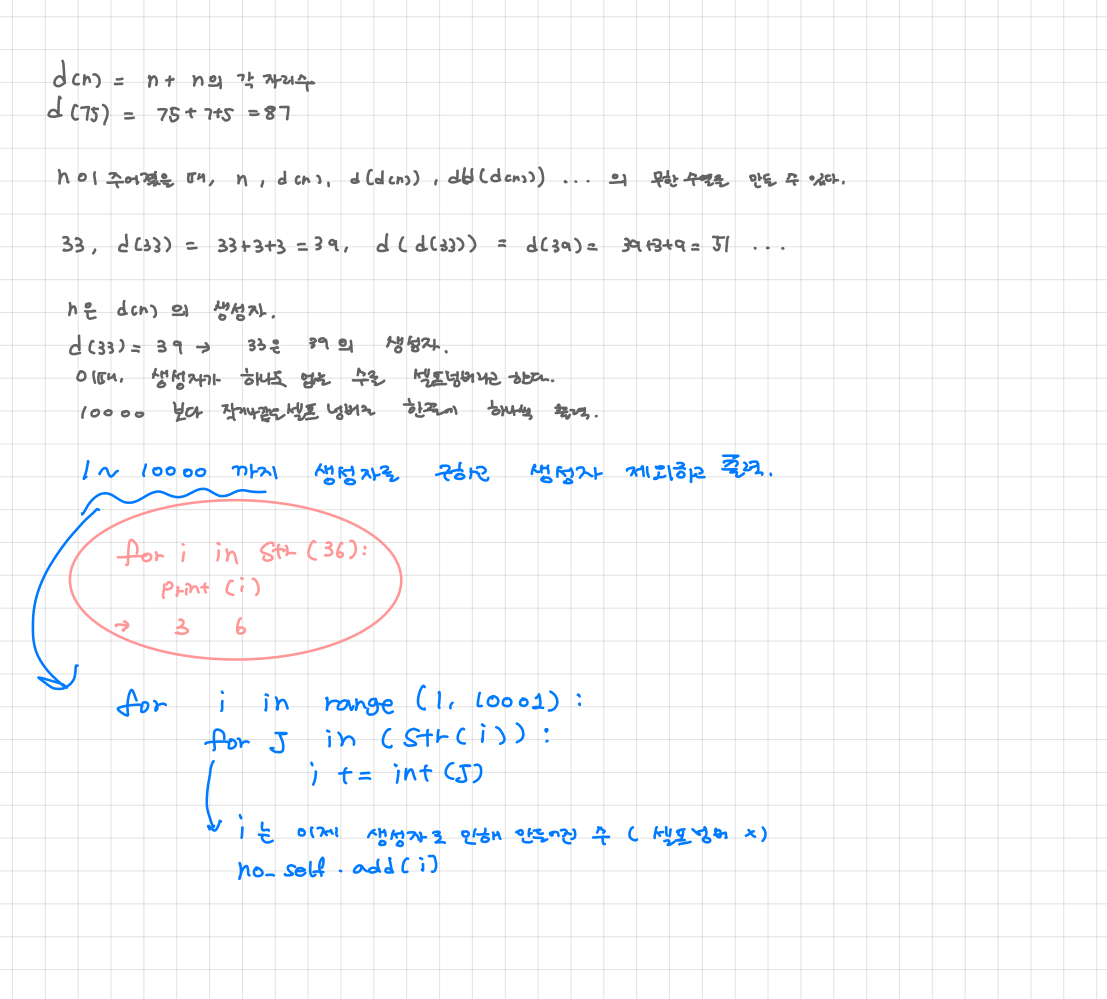 d(n) = n + n의 각 자리수
d(75) = 75+7+5 = 87
n이 주어졌을 때, n, d(n), d(d(n)), d(d(d(n))) ... 의 무한 수열을 만들 수 있다.
33, d(33) = 33+3+3 = 39, d(d(33)) = d(39) = 39+3+9 = 51 ...
n은 d(n)의 생성자.
d(33) = 39 → 33은 39의 생성자.
이때, 생성자가 하나도 없는 수를 셀프넘버라고 한다.
10000 보다 작거나같은 셀프 넘버를 한줄에 하나씩 출력.
1 ~ 10000 까지 생성자를 구하고 생성자 제외하고 출력.
for i in str(36):
print(i)
→ 3 6
for i in range(1, 10001):
for J in (str(i)):
i += int(J)
i는 이제 생성자로 인해 만들어진 수 (셀프넘버 x)
no_self.add(i)